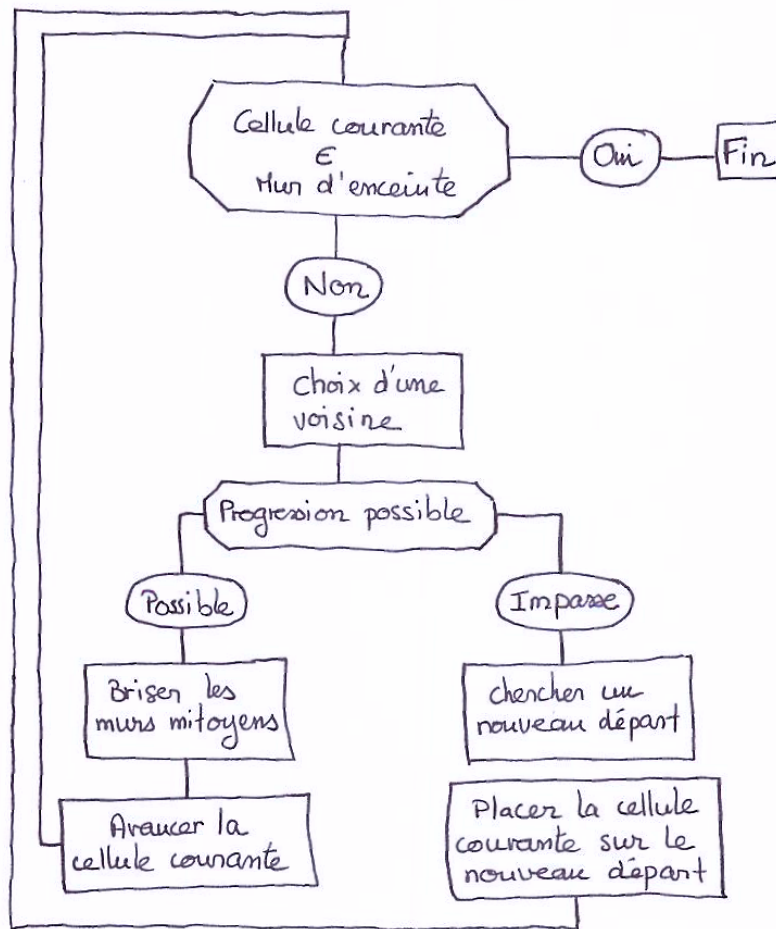 Cellule courante
∈
Mur d'enceinte
Oui
Fin
Non
Choix d'une
voisine
Progression possible
Possible
Impasse
Briser les
murs mitoyens
chercher un
nouveau départ
Avancer la
cellule courante
Placer la cellule
courante sur le
nouveau départ